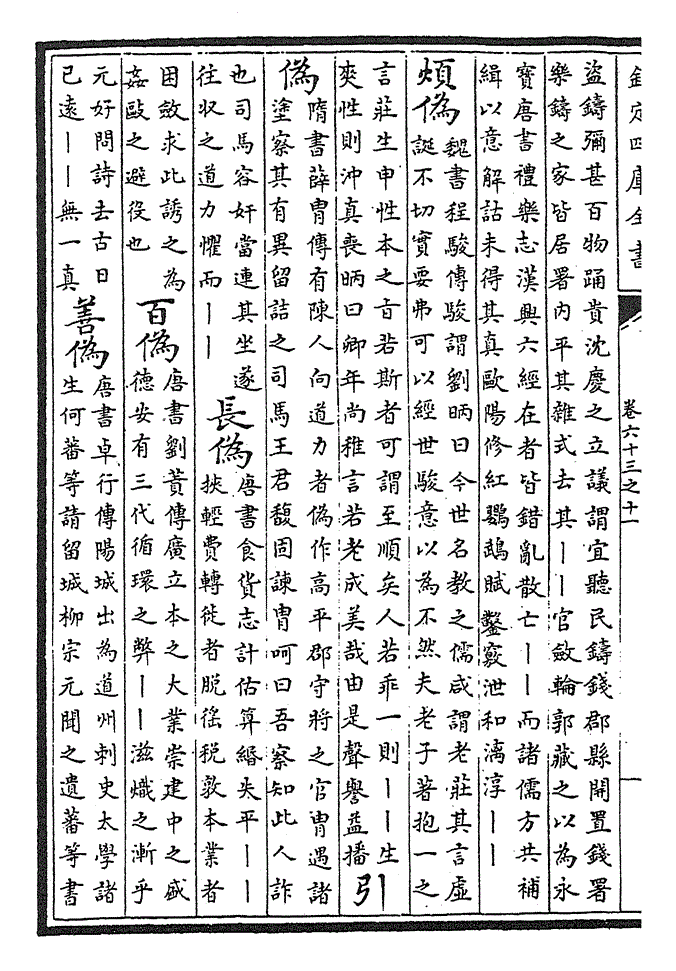 欽定四庫全書
卷六十三之十一
盜鑄彌甚百物踊貴沈慶之立議謂宜聽民鑄錢郡縣開置錢署
樂鑄之家皆居署内平其雜式去其丨丨官斂輪郭藏之以為永
寶唐書禮樂志漢興六經在者皆錯亂散亡丨丨而諸儒方共補
緝以意解詁未得其真歐陽修紅鸚鵡賦鑿竅泄和漓淳丨丨
煩偽
魏書程駿傳駿謂劉昞曰今世名教之儒咸謂老莊其言虛
誕不切實要弗可以經世駿意以為不然夫老子著抱一之
言莊生申性本之旨若斯者可謂至順矣人若乖一則丨丨生
爽性則沖真喪昞曰卿年尚稚言若老成美哉由是聲譽益播
引
偽
隋書薛胄傳有陳人向道力者偽作高平郡守將之官胄遇諸
塗察其有異留詰之司馬王君馥固諫胄呵曰吾察知此人詐
也司馬容奸當連其坐遂
往収之道力懼而丨丨
長偽
唐書食貨志計估算緡失平丨丨
挾輕費轉徙者脫徭稅敦本業者
困斂求此誘之為
姦毆之避役也
百偽
唐書劉蕡傳廣立本之大業崇建中之盛
德安有三代循環之弊丨丨滋熾之漸乎
元好問詩去古日
已遠丨丨無一真
善偽
唐書卓行傳陽城出為道州刺史太學諸
生何蕃等請留城柳宗元聞之遺蕃等書